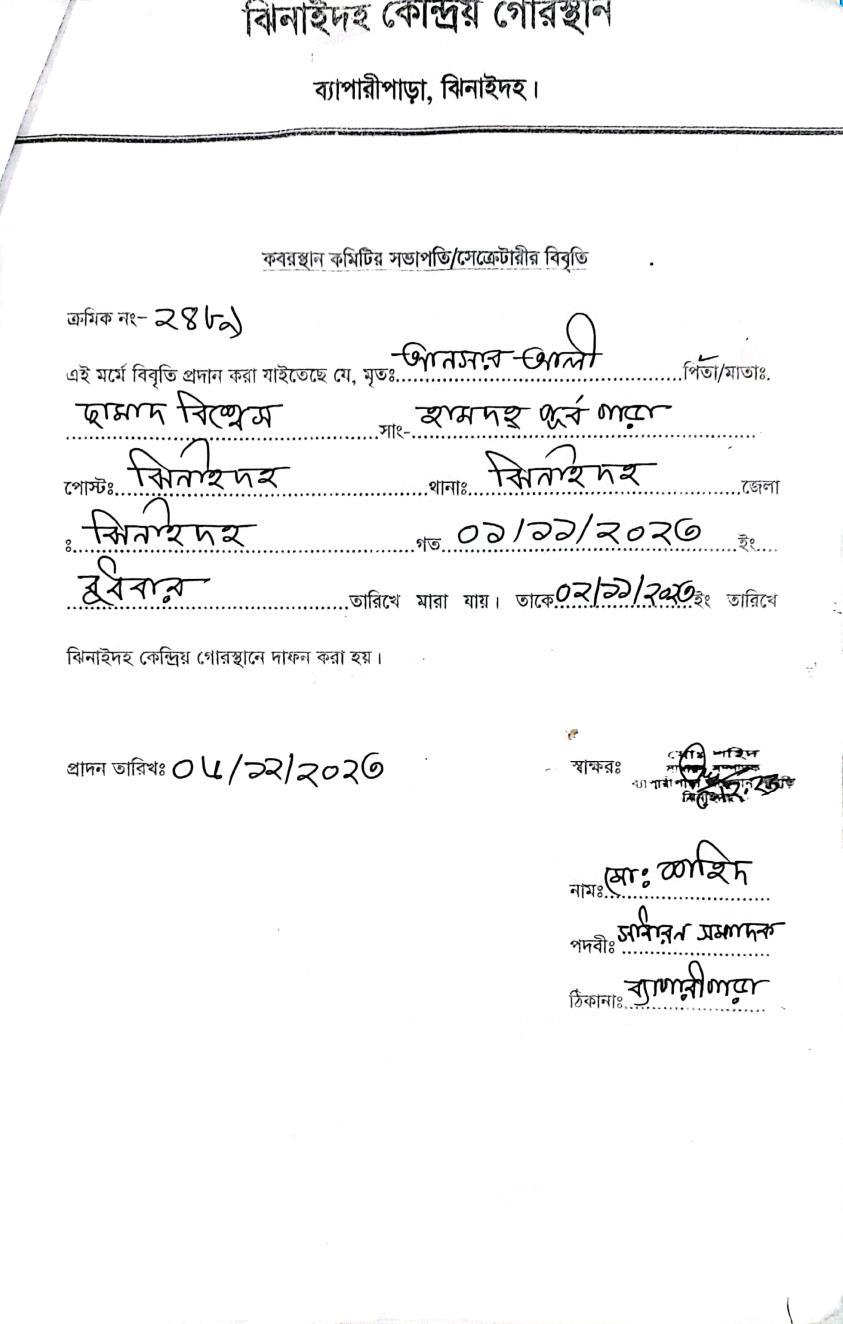 ঝিনাইদহ কেন্দ্রিয় গোরস্থান
ব্যাপারীপাড়া, ঝিনাইদহ।
কবরস্থান কমিটির সভাপতি/সেক্রেটারীর বিবৃতি
ক্রমিক নং- ২৪৮৯
এই মর্মে বিবৃতি প্রদান করা যাইতেছে যে, মৃতঃ আনসার আলী পিতা/মাতাঃ
ছামাদ বিশ্বেস সাং- হামদহ পূর্ব পাড়া
পোস্টঃ ঝিনাইদহ থানাঃ ঝিনাইদহ জেলা
ঃ ঝিনাইদহ গত ০১/১১/২০২৩ ইং
বুধবার তারিখে মারা যায়। তাকে ০২/১১/২০২৩ ইং তারিখে
ঝিনাইদহ কেন্দ্রিয় গোরস্থানে দাফন করা হয়।
প্রাদন তারিখঃ ০৫/১২/২০২৩
স্বাক্ষরঃ
নামঃ মোঃ শহিদ
পদবীঃ সাধারন সম্পাদক
ঠিকানাঃ ব্যাপারীপাড়া